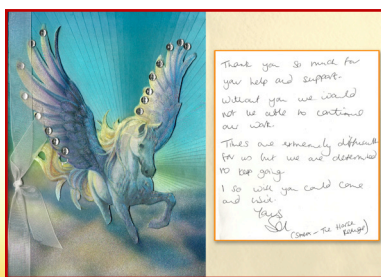 Thank you so much for
your help and support.
Without you we would
not be able to continue
our work.
Times are extremely difficult
for us but we are determined
to keep going.
I so wish you could come
and visit.
Yours
(Sara - The Horse
Refuge)